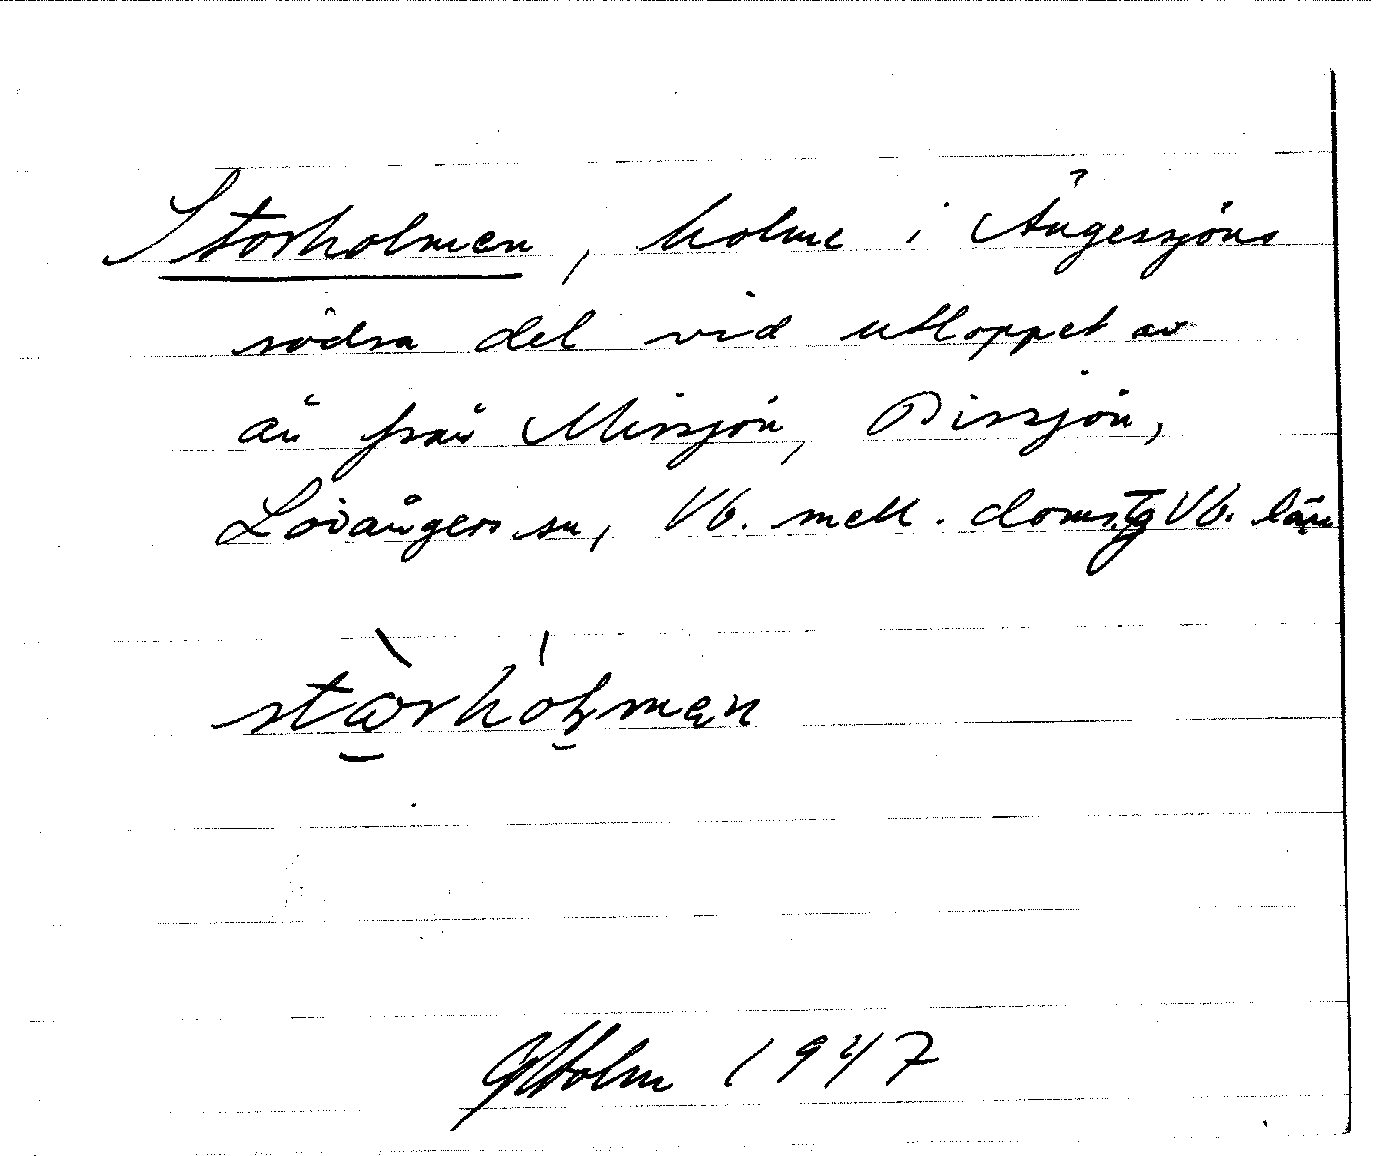 Storholmen, holme i Ångessjöns
södra del vid utloppet av
ån från Missjön, Bissjön,
Lövångers sn, Vb. mell. doms. tg Vb. län
GHolm 1947